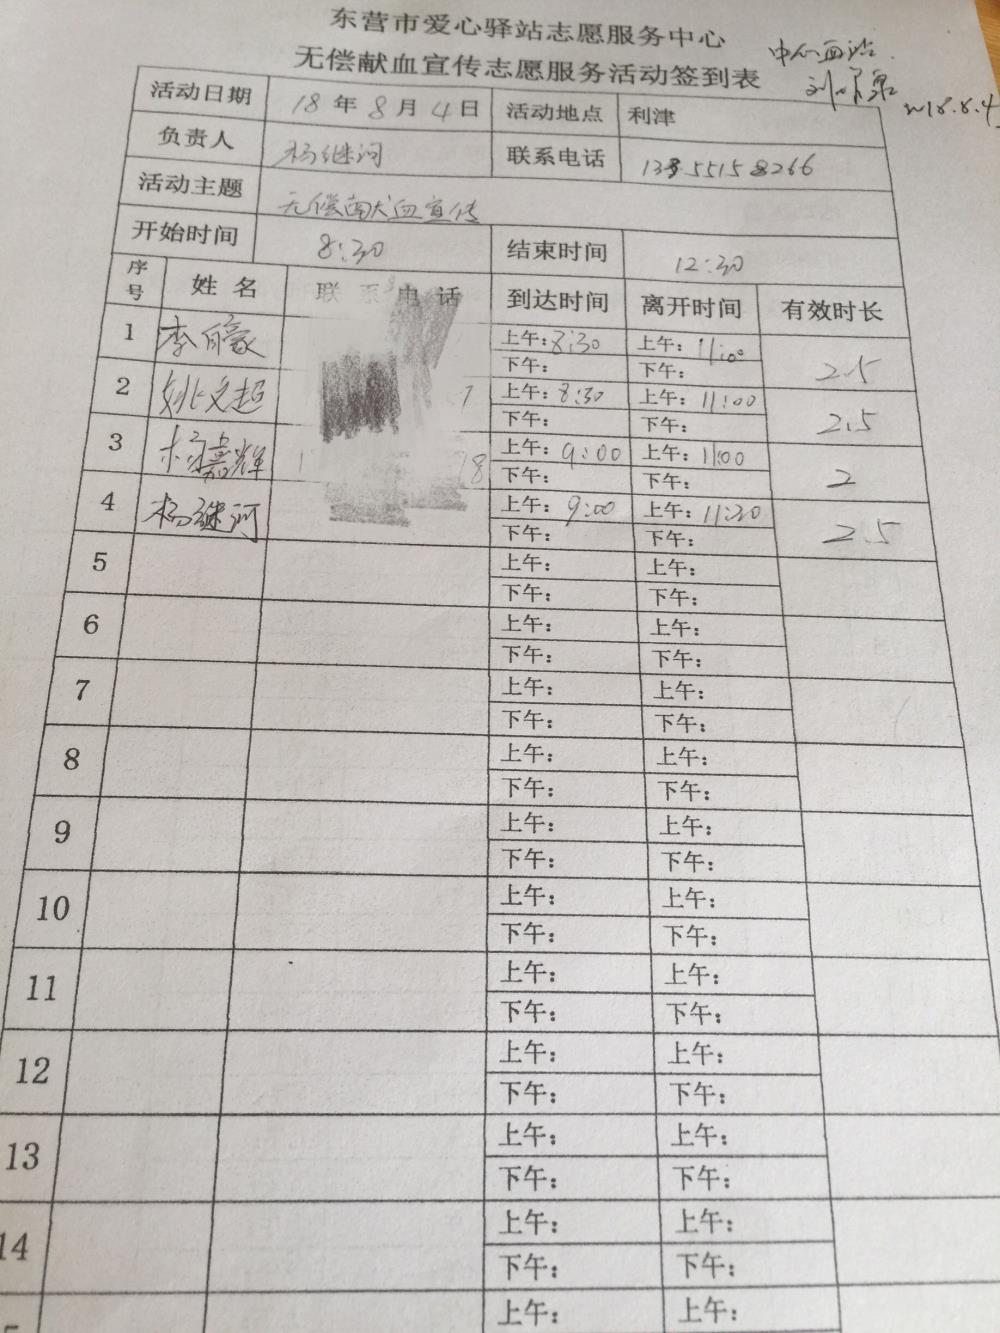 东营市爱心驿站志愿服务中心
无偿献血宣传志愿服务活动签到表
中心血站
刘
2018.8.4
活动日期 18年8月4日 活动地点 利津
负责人 杨继河 联系电话 13 55158266
活动主题 无偿献血宣传
开始时间 8:30 结束时间 12:30
序号 姓名 联系电话 到达时间 离开时间 有效时长
1 李自豪 上午:8:30 上午:11:00 2.5
下午: 下午:
2 姚文超 7 上午:8:30 上午:11:00 2.5
下午: 下午:
3 杨嘉辉 1 78 上午:9:00 上午:11:00 2
下午: 下午:
4 杨继河 上午:9:00 上午:11:30 2.5
下午: 下午:
5 上午: 上午:
下午: 下午:
6 上午: 上午:
下午: 下午:
7 上午: 上午:
下午: 下午:
8 上午: 上午:
下午: 下午:
9 上午: 上午:
下午: 下午:
10 上午: 上午:
下午: 下午:
11 上午: 上午:
下午: 下午:
12 上午: 上午:
下午: 下午:
13 上午: 上午:
下午: 下午:
14 上午: 上午:
下午: 下午:
上午: 上午: